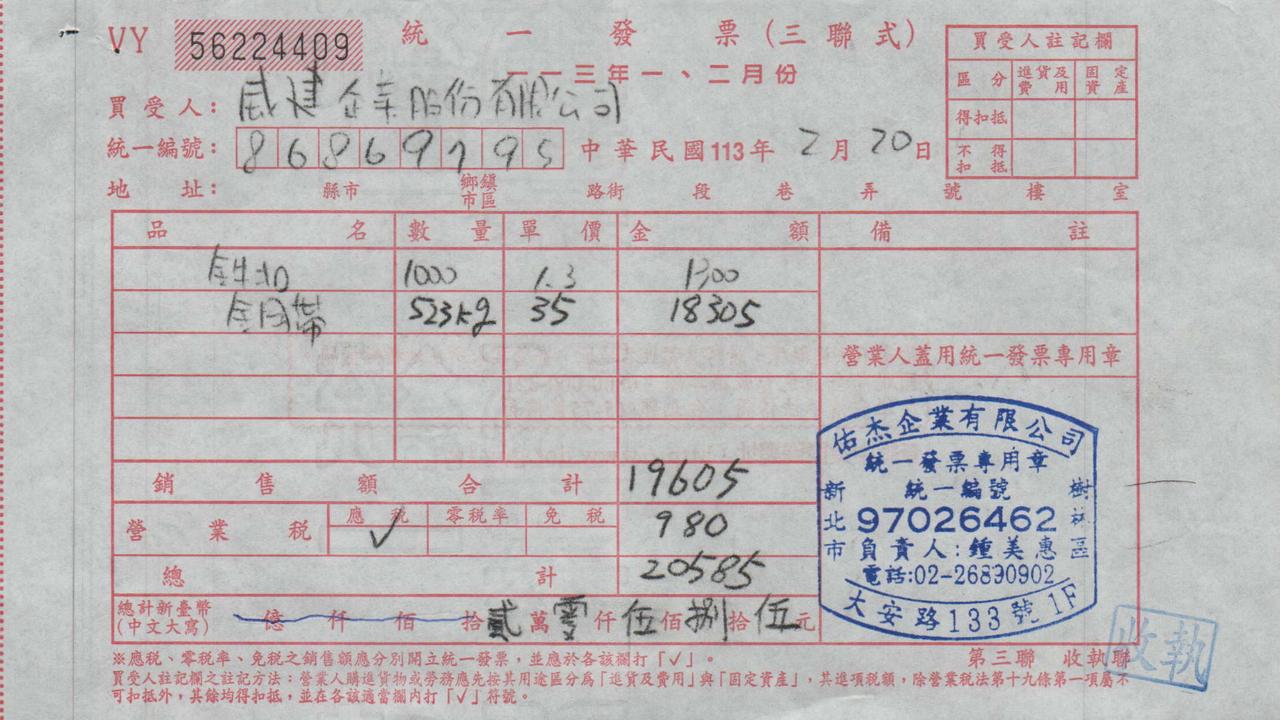 VY 56224409 統一發票(三聯式)
一一三年一、二月份
買受人: 威建企業股份有限公司
統一編號: 86869795 中華民國113年2月20日
地址: 縣市 鄉鎮市區 路街 段 巷 弄 號 樓 室
買受人註記欄
區分 進貨及費用 固定資產
得扣抵
不得扣抵
品名 數量 單價 金額 備註
1000 1.3 1300
鋼帶 523kg 35 18305
營業人蓋用統一發票專用章
銷售額合計 19605
營業稅 應稅 零稅率 免稅 980
✓
總計 20585
總計新臺幣(中文大寫) 億仟佰拾貳萬零仟伍佰捌拾伍元
佑杰企業有限公司
統一發票專用章
統一編號
97026462
新北市 樹林區
負責人:鍾美惠
電話:02-26890902
大安路133號1F
※應稅、零稅率、免稅之銷售額應分別開立統一發票,並應於各該欄打「✓」。
第三聯 收執聯
收執
買受人註記欄之註記方法:營業人購進貨物或勞務應先按其用途區分為「進貨及費用」與「固定資產」,其進項稅額,除營業稅法第十九條第一項屬不
可扣抵外,其餘均得扣抵,並在各該適當欄內打「✓」符號。